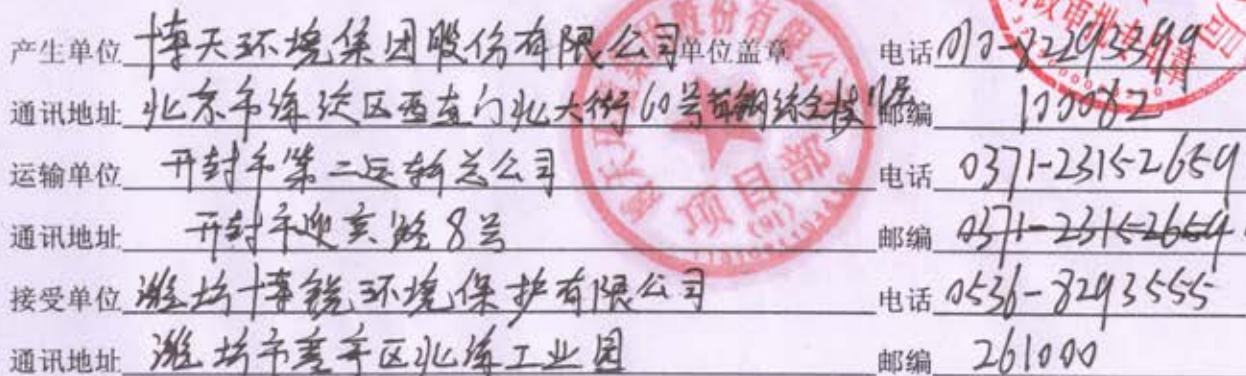 产生单位 博天环境集团股份有限公司 单位盖章 电话 010-82293399
通讯地址 北京市海淀区西直门北大街60号首钢综合楼 邮编 100082
运输单位 开封市第二运输总公司 电话 0371-23152659
通讯地址 开封市迎宾路8号 邮编 0371-23152659
接受单位 潍坊博锐环境保护有限公司 电话 0536-8293555
通讯地址 潍坊市寒亭区北海工业园 邮编 261000
项目部